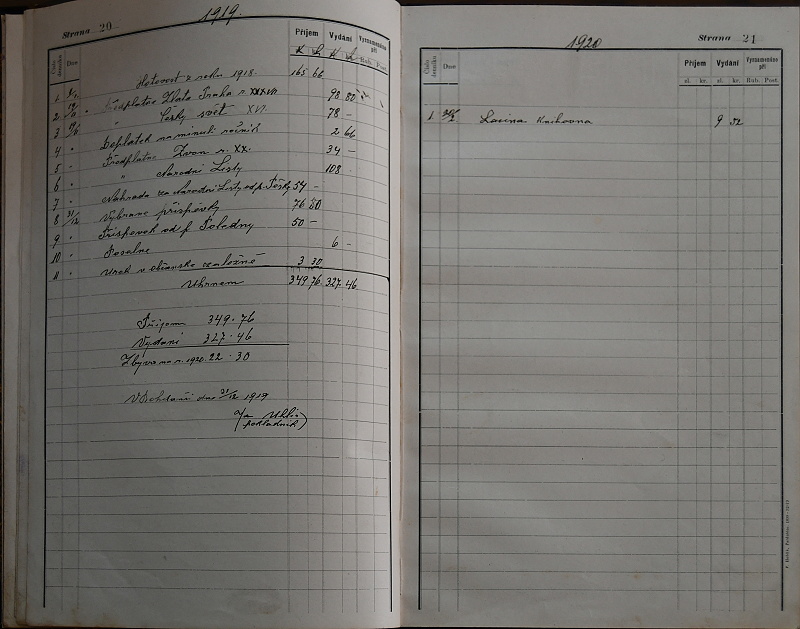 Strana 20
1919.
Číslo deníku Dne Příjem Vydání Vyznamenáno při
K h K h Rub. Post.
Hotovost z roku 1918. 165 66
1 Předplatné Zlatá Praha r. XXXVI 98 80
2 " " Český svět XVI. 78 –
3 Doplatek na minulý ročník 2 66
4 " Předplatné Zvon r. XX. 34 –
5 " " Národní Listy 108 –
6 " Náhrada za Národní Listy od p. 54 –
7 "
8 31/12 Vybrané příspěvky 76 80
9 " Příspěvek od p. Poledny 50 –
10 " 6 –
11 " Úrok v občanské záložně 3 30
Úhrnem 349 76 327 46
Příjem 349 · 76
Vydání 327 · 46
Zbývá na r. 1920. 22 · 30
dne 31/12 1919
pokladník
1920
Strana 21
Číslo deníku Dne Příjem Vydání Vyznamenáno při
zl. kr. zl. kr. Rub. Post.
1 Lacina Knihovna 9 52